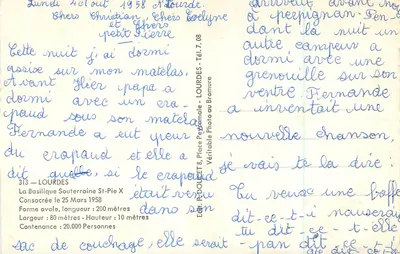 Lundi 4 Out 1958 Lourdes.
Chers Christian, Chers Evelyne
et Chers
petit Pierre
Cette nuit j'ai dormi
assise sur mon matelas.
Avant Hier papa a
dormi avec un cra-
paud sous son matelas
Fernande a eut peur
du crapaud et elle a
dit que si le crapaud
était venu
dans son
sac de couchage, elle serait
313 — LOURDES
La Basilique Souterraine St-Pie X
Consacrée le 25 Mars 1958
Forme ovale, longueur : 200 mètres
Largeur : 80 mètres - Hauteur : 10 mètres
Contenance : 20.000 Personnes
Edit. P. DOUCET, 8, Place Peyramale - LOURDES - Tél. 7. 08
Véritable Photo au Bromure
arrivait avant nous
a perpignan. Pen-
dant la nuit un
autre campeur a
dormi avec une
grenouille sur son
ventre Fernande
a inventait une
nouvelle chanson.
je vais te la dire :
Tu veux une baffe
dit-ee-t-i
tu dit-ee-t-el
pan dit ee-t-i
dit ee-t-i